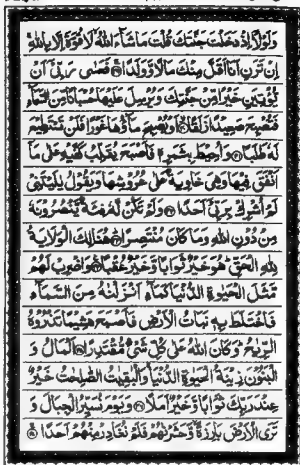 وَلَوْلَآ اِذْ دَخَلْتَ جَنَّتَكَ قُلْتَ مَا شَآءَ اللّٰهُ لَا قُوَّةَ اِلَّا بِاللّٰهِ
اِنْ تَرَنِ اَنَا اَقَلَّ مِنْكَ مَالًا وَّوَلَدًا ۝ فَعَسٰى رَبِّيْٓ اَنْ
يُّؤْتِيَنِ خَيْرًا مِّنْ جَنَّتِكَ وَيُرْسِلَ عَلَيْهَا حُسْبَانًا مِّنَ السَّمَآءِ
فَتُصْبِحَ صَعِيْدًا زَلَقًا ۝ اَوْ يُصْبِحَ مَآؤُهَا غَوْرًا فَلَنْ تَسْتَطِيْعَ
لَهٗ طَلَبًا ۝ وَاُحِيْطَ بِثَمَرِهٖ فَاَصْبَحَ يُقَلِّبُ كَفَّيْهِ عَلٰى مَآ
اَنْفَقَ فِيْهَا وَهِيَ خَاوِيَةٌ عَلٰى عُرُوْشِهَا وَيَقُوْلُ يٰلَيْتَنِيْ
لَمْ اُشْرِكْ بِرَبِّيْٓ اَحَدًا ۝ وَلَمْ تَكُنْ لَّهٗ فِئَةٌ يَّنْصُرُوْنَهٗ
مِنْ دُوْنِ اللّٰهِ وَمَا كَانَ مُنْتَصِرًا ۝ هُنَالِكَ الْوَلَايَةُ
لِلّٰهِ الْحَقِّ هُوَ خَيْرٌ ثَوَابًا وَّخَيْرٌ عُقْبًا ۝ وَاضْرِبْ لَهُمْ
مَّثَلَ الْحَيٰوةِ الدُّنْيَا كَمَآءٍ اَنْزَلْنٰهُ مِنَ السَّمَآءِ
فَاخْتَلَطَ بِهٖ نَبَاتُ الْاَرْضِ فَاَصْبَحَ هَشِيْمًا تَذْرُوْهُ
الرِّيٰحُ وَكَانَ اللّٰهُ عَلٰى كُلِّ شَيْءٍ مُّقْتَدِرًا ۝ اَلْمَالُ وَ
الْبَنُوْنَ زِيْنَةُ الْحَيٰوةِ الدُّنْيَا وَالْبٰقِيٰتُ الصّٰلِحٰتُ خَيْرٌ
عِنْدَ رَبِّكَ ثَوَابًا وَّخَيْرٌ اَمَلًا ۝ وَيَوْمَ نُسَيِّرُ الْجِبَالَ وَ
تَرَى الْاَرْضَ بَارِزَةً وَّحَشَرْنٰهُمْ فَلَمْ نُغَادِرْ مِنْهُمْ اَحَدًا ۝